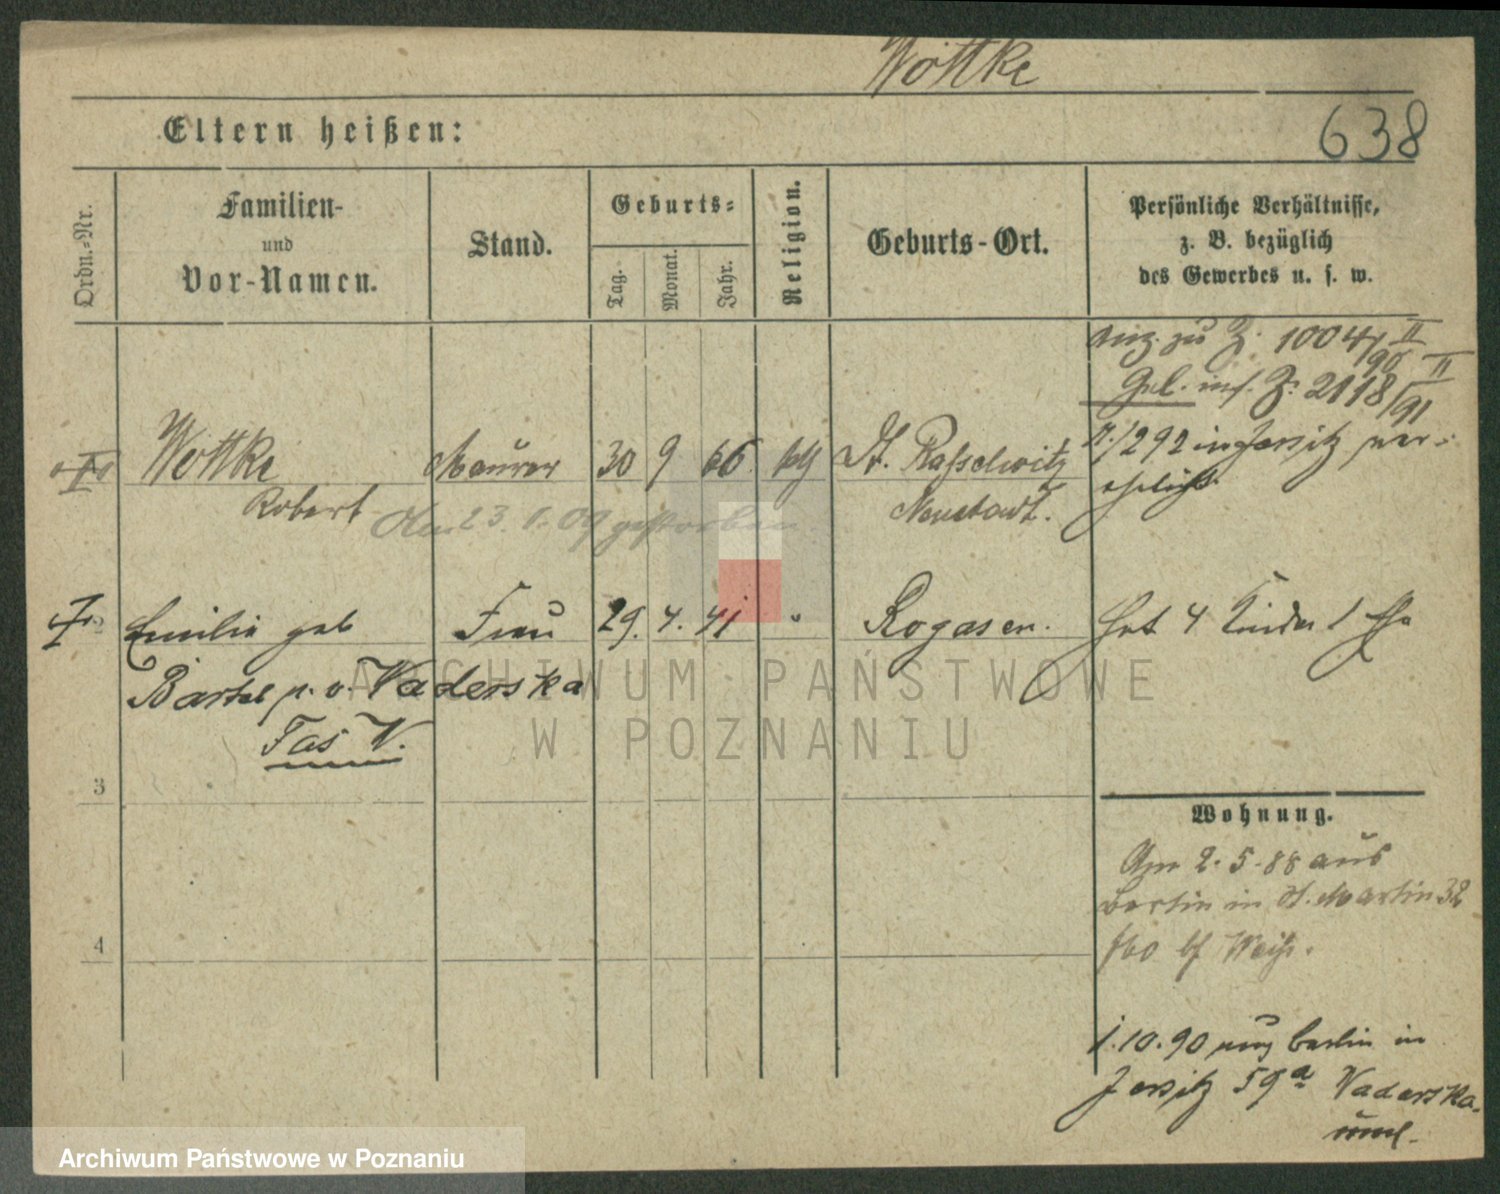 Wottke
638
Eltern heißen:
Ordn.-Nr.
Familien-
und
Vor-Namen.
Stand.
Geburts-
Tag.
Monat.
Jahr.
Religion.
Geburts-Ort.
Persönliche Verhältnisse,
z. B. bezüglich
des Gewerbes u. s. w.
zu Z. 1004/90 II
Gel. Z. 2118/91 II
Wottke Maurer 30 9 66 kth Dt. Rasselwitz
292 in Jersitz ver-
ehelicht.
Robert Neustadt.
Am 23. 1. 09 gestorben.
2
Emilie geb Frau 29. 4. 41 " Rogasen. Hat 4 Kinder 1 Ehe
Bartel p. v. Waderska
Fas W.
3
Wohnung.
Am 2. 5. 88 aus
Berlin in St. Martin 32
bei Weiß.
4
1. 10. 90 aus Berlin in
Jersitz 59a Waderska.
ARCHIWUM PAŃSTWOWE
W POZNANIU
Archiwum Państwowe w Poznaniu